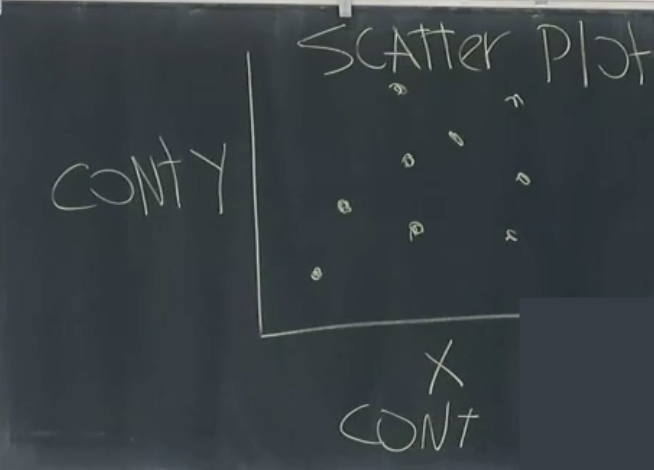 SCAtter Plot
CONt Y
X
CONt